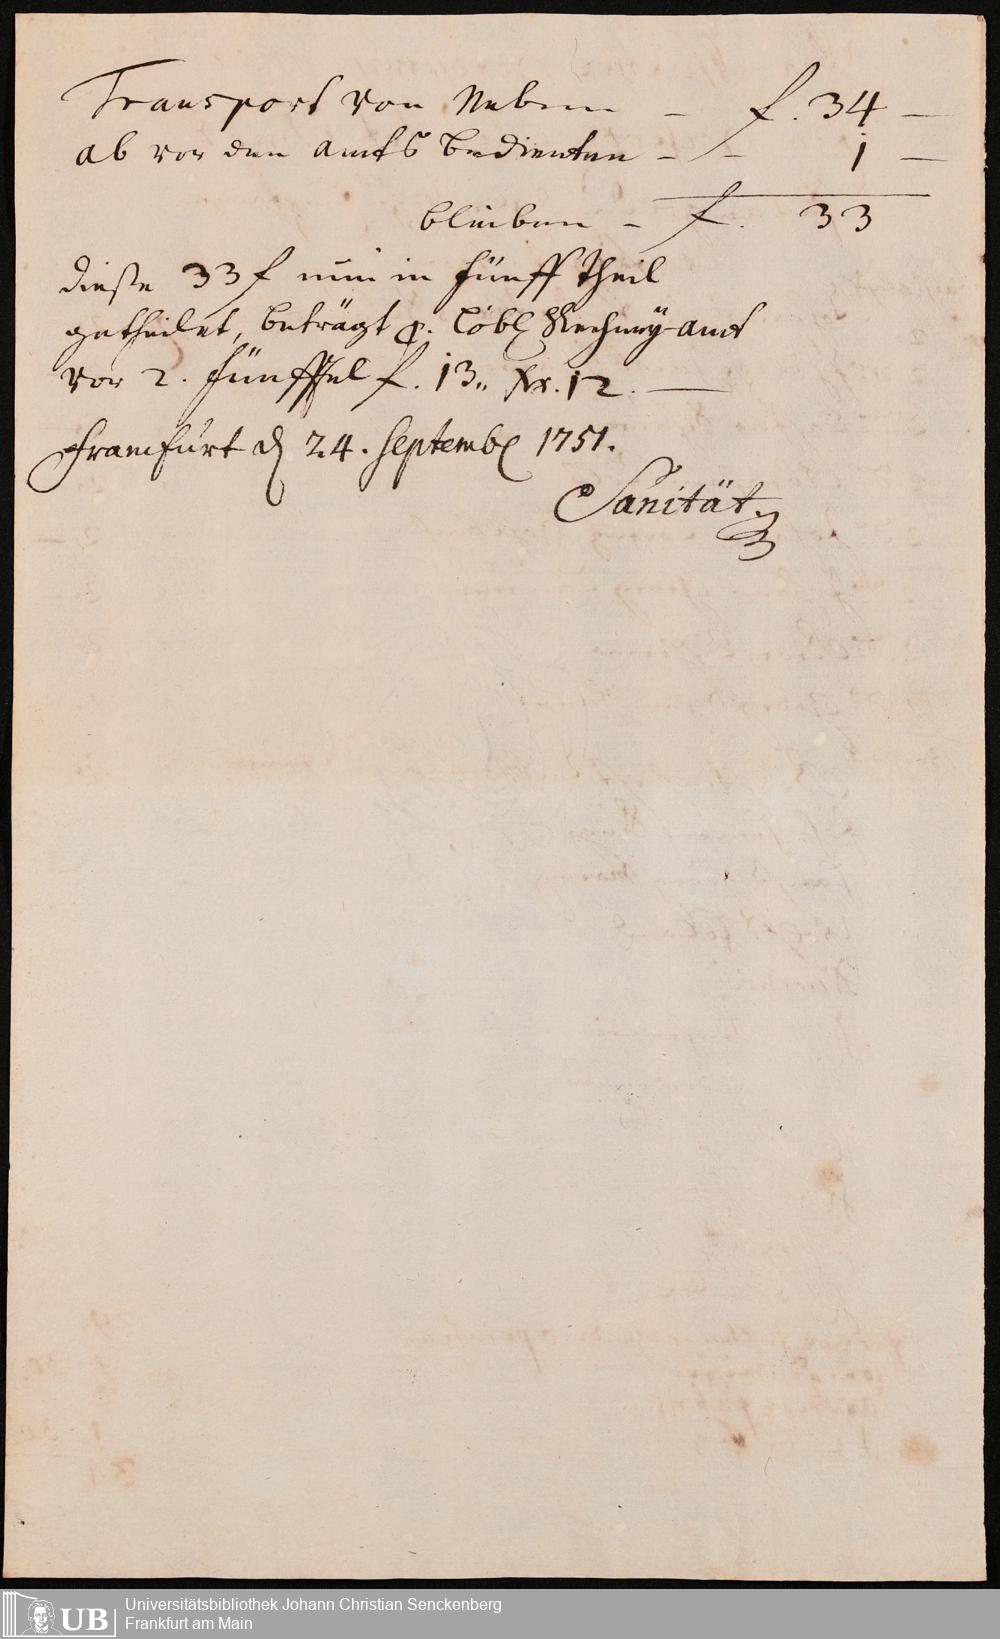 Transport von Neben — f. 34 —
ab vor den Amts bedienten — — 1 —
bleiben — f. 33
dieße 33 f nun in fünff Theil
getheilet, beträgt p. Löbl Rechney-amt
vor 2. fünfftel f. 13,, Xr. 12. —
Francfurt d 24. Septemb 1751.
Sanität
UB
Universitätsbibliothek Johann Christian Senckenberg
Frankfurt am Main